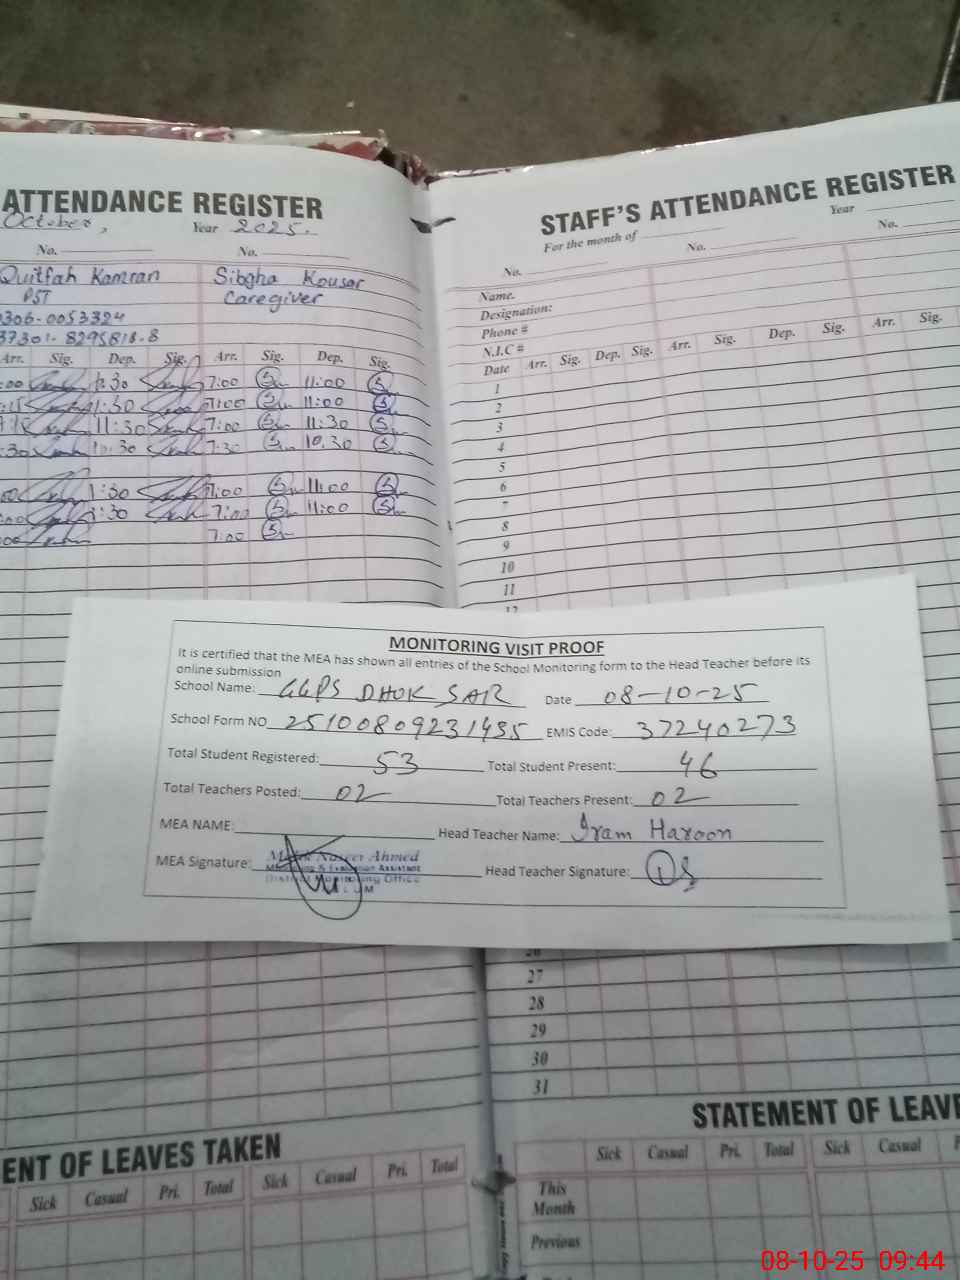 ATTENDANCE REGISTER
October, Year 2025.
No. No.
Quitfah Kamran Sibgha Kousar
PST Caregiver
0306-0053324
37301-8295818-8
Arr. Sig. Dep. Sig. Arr. Sig. Dep. Sig.
:00 1:30 7:00 11:00
1:30 7:00 11:00
11:30 7:00 11:30
:30 10:30 7:30 10:30
:00 1:30 7:00 11:00
:00 1:30 7:00 11:00
:00 7:00
STAFF'S ATTENDANCE REGISTER
For the month of Year
No. No. No.
Name.
Designation:
Phone #
N.I.C #
Date Arr. Sig. Dep. Sig. Arr. Sig. Dep. Sig. Arr. Sig.
1
2
3
4
5
6
7
8
9
10
11
12
MONITORING VISIT PROOF
It is certified that the MEA has shown all entries of the School Monitoring form to the Head Teacher before its
online submission
School Name: GGPS DHOK SAR Date 08-10-25
School Form NO 25100809231435 EMIS Code: 37240273
Total Student Registered: 53 Total Student Present: 46
Total Teachers Posted: 02 Total Teachers Present: 02
MEA NAME: Head Teacher Name: Iram Haroon
MEA Signature: Head Teacher Signature:
Malik Naseer Ahmed
Monitoring & Evaluation Assistant
District Monitoring Office
26
27
28
29
30
31
ENT OF LEAVES TAKEN
Sick Casual Pri. Total Sick Casual Pri. Total
STATEMENT OF LEAVE
Sick Casual Pri. Total Sick Casual P
This
Month
Previous
08-10-25 09:44